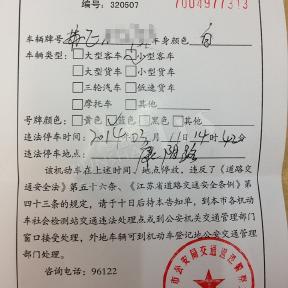 编号：320507
7004977313
车辆牌号 车身颜色 白
车辆类型： □大型客车 ☑小型客车
□大型货车 □小型货车
□三轮汽车 □低速货车
□摩托车 □其他
号牌颜色：□黄色 ☑蓝色 □黑色 □其他
违法停车时间：2014 03 11 14时42分
违法停车地点： 康阳路
该机动车在上述时间、地点停放，违反了《道路交
通安全法》第五十六条、《江苏省道路交通安全条例》第
四十三条的规定，请于十日后持本告知单，到本市各机动
车社会检测站交通违法处理点或到公安机关交通管理部门
窗口接受处理，外地车辆可到机动车登记地公安交通管理
部门处理。
咨询电话：96122
市公安局交通巡逻警察